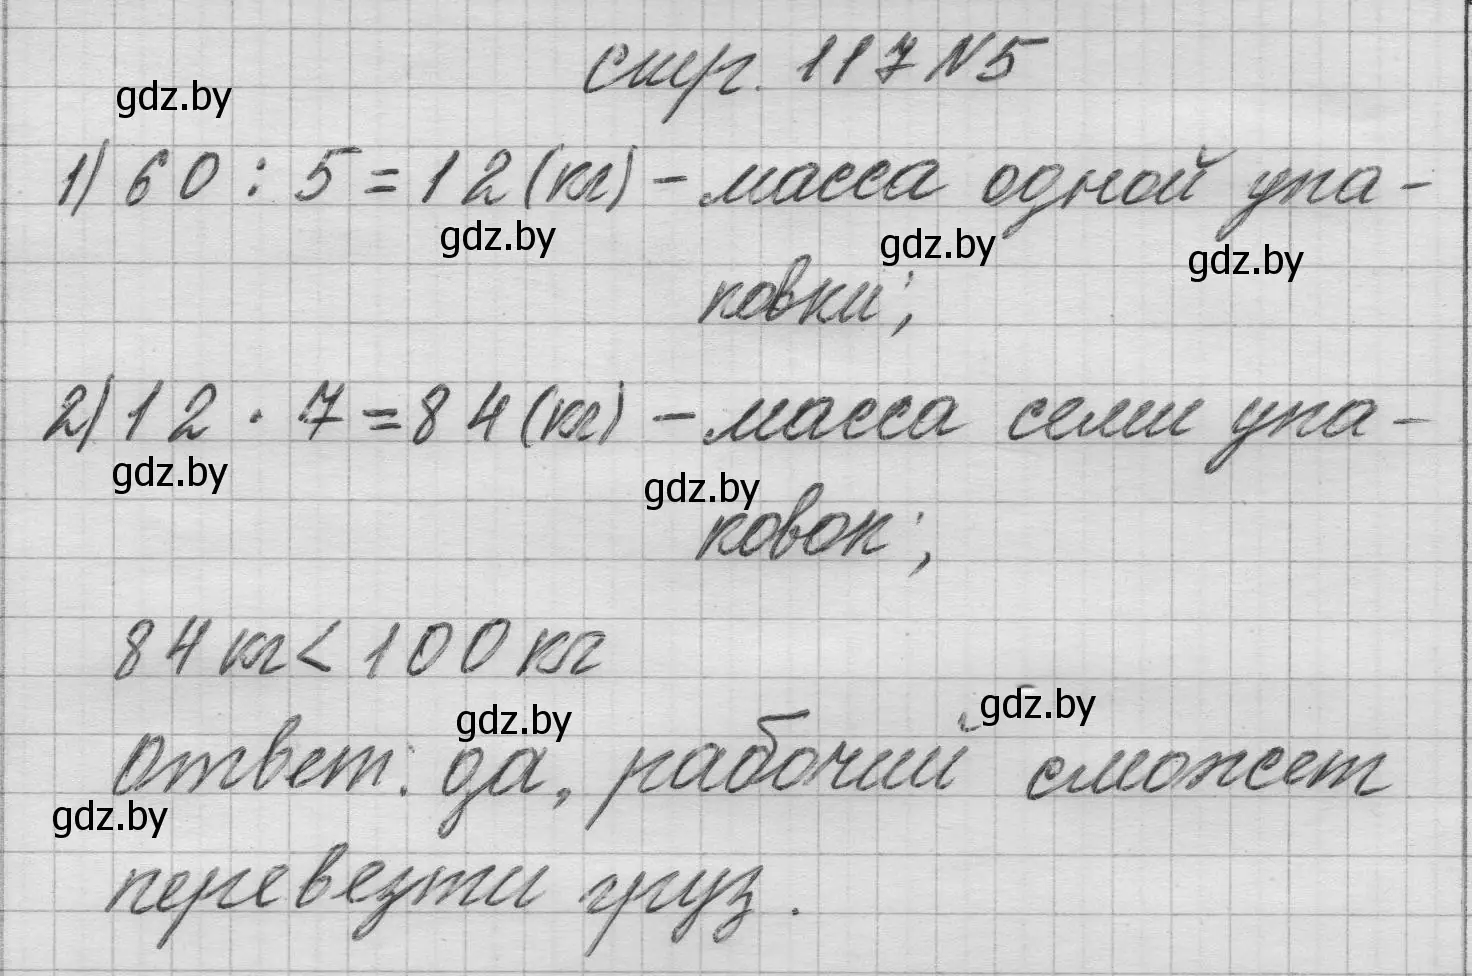 стр. 117 N5
gdz.by
1) 60 : 5 = 12 (кг) - масса одной упа-
gdz.by gdz.by gdz.by
ковки;
2) 12 · 7 = 84 (кг) - масса семи упа-
gdz.by gdz.by
ковок;
84 кг < 100 кг
gdz.by gdz.by
Ответ: да, рабочий сможет
gdz.by
перевезти груз.